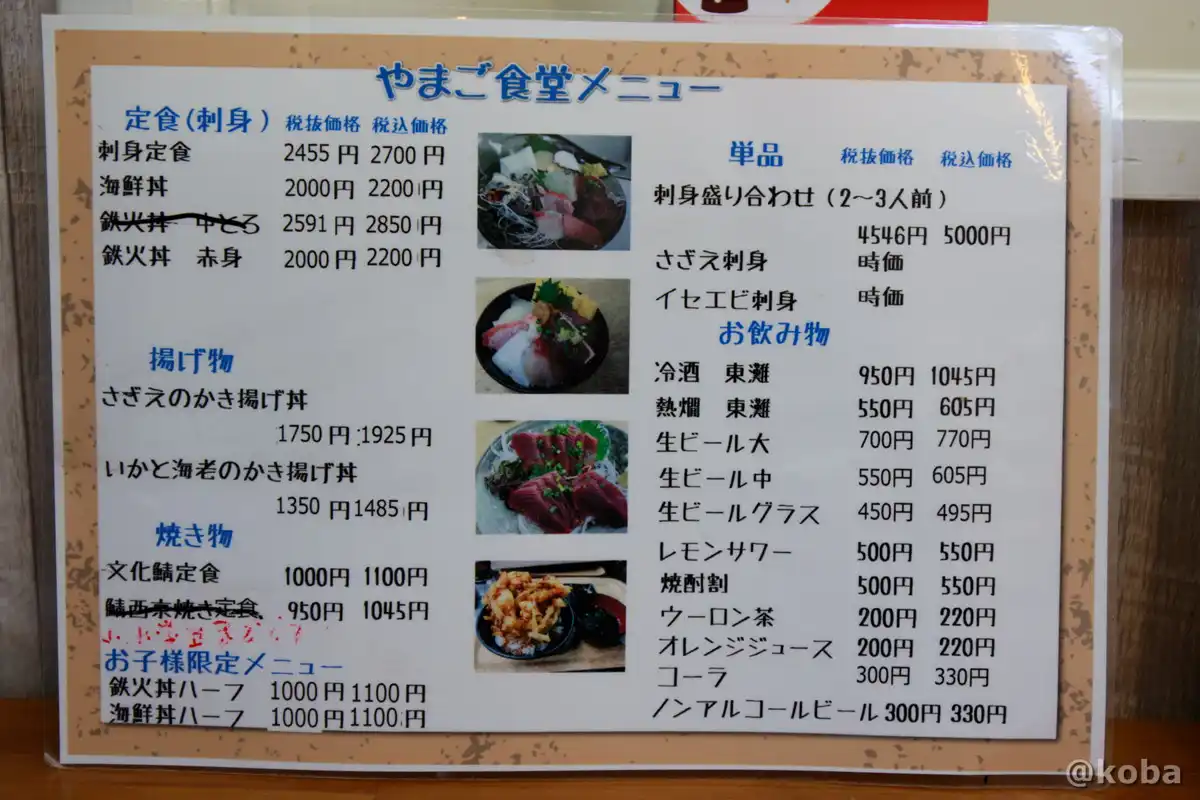 やまご食堂メニュー
定食(刺身) 税抜価格 税込価格
刺身定食 2455円 2700円
海鮮丼 2000円 2200円
鉄火丼 中とろ 2591円 2850円
鉄火丼 赤身 2000円 2200円
揚げ物
さざえのかき揚げ丼
1750円 1925円
いかと海老のかき揚げ丼
1350円 1485円
焼き物
文化鯖定食 1000円 1100円
鯖西京焼き定食 950円 1045円
お子様限定メニュー
鉄火丼ハーフ 1000円 1100円
海鮮丼ハーフ 1000円 1100円
単品 税抜価格 税込価格
刺身盛り合わせ(2〜3人前)
4546円 5000円
さざえ刺身 時価
イセエビ刺身 時価
お飲み物
冷酒 東灘 950円 1045円
熱燗 東灘 550円 605円
生ビール大 700円 770円
生ビール中 550円 605円
生ビールグラス 450円 495円
レモンサワー 500円 550円
焼酎割 500円 550円
ウーロン茶 200円 220円
オレンジジュース 200円 220円
コーラ 300円 330円
ノンアルコールビール 300円 330円
@koba